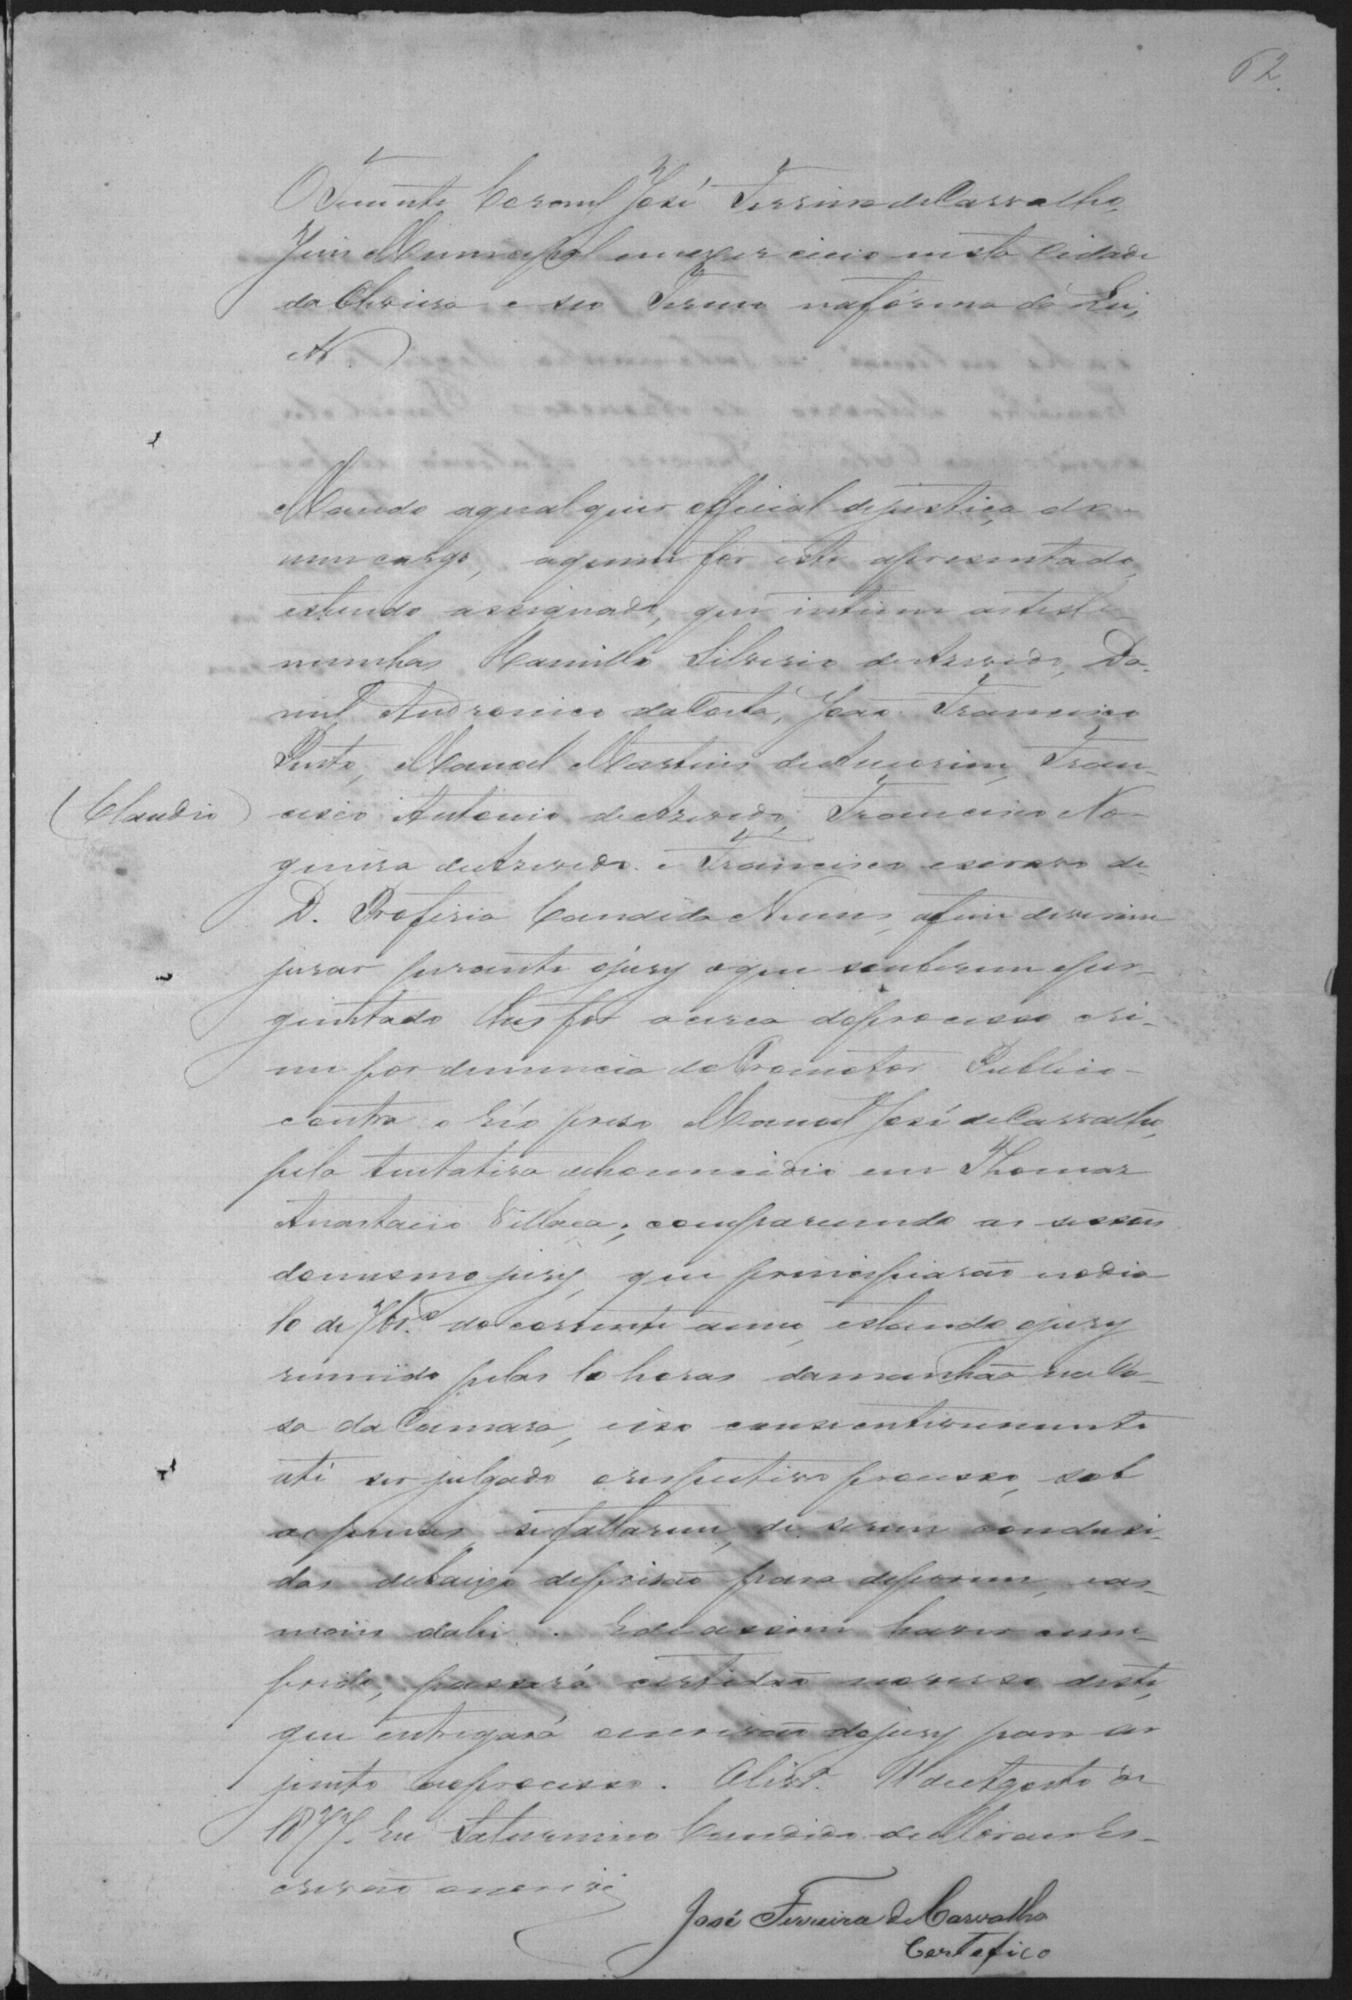 62.
O Tenente Coronel José Ferreira de Carvalho,
Juis Municipal em exercicio nesta Cidade
da Oliveira e seo Termo na fórma da Lei,
Mando a qualquer official de justiça de
meu cargo, a quem for este apresentado,
estando assignado, que intime as teste-
munhas Kamillo Silverio de Azevedo, Da-
niel Andronico da Costa, João Francisco
Pinto, Manoel Martins de Amorim, Fran-
(Claudio) cisco Antonio de Azevedo, Francisco No-
gueira de Azevedo e Francisco escravo de
D. Profiria Candida Nunes, afim de virem
jurar perante o jury o que souberem e per-
guntado lhes for acerca do processo cri-
me por denuncia do Promotor Publico
contra o réo preso Manoel José de Carvalho,
pela tentativa de homicidio em Thomaz
Anastacio Villaça; comparecendo as sessões
do mesmo jury, que principiarão no dia
10 de 7br.º do corrente anno, estando o jury
reunido pelas 10 horas da manhão na Ca-
sa da Camara, e isso consecutivamente
até ser julgado o respectivo processo, sob
as penas, se faltarem, de serem condusi-
das debaixo de prisão para deporem, e as
mais da lei. E de assim haver cum-
prido, passará certidão no verso deste,
que entregará ao escrivão do jury para ser
junto ao processo. Olivr.ª 11 de Agosto de
1877. Eu Saturnino Candido de Moraes Es-
crivão o escrivi
José Ferreira de Carvalho
Certefico